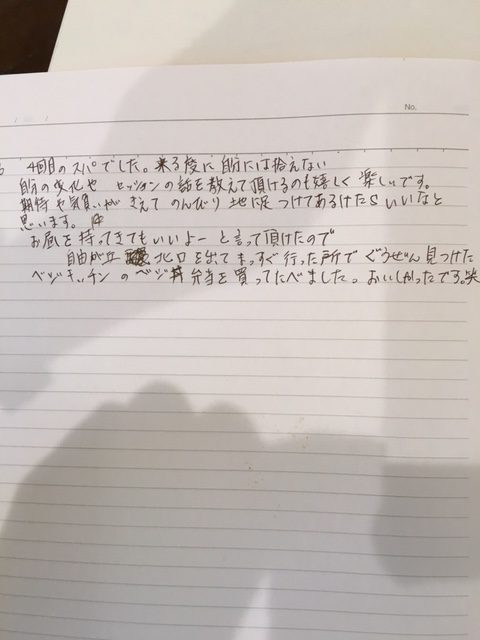 No.
4回目のスパでした。来る度に自分には拾えない
自分の変化や セッションの話を教えて頂けるのも嬉しく 楽しいです。
期待や気負いがきえて のんびり 地に足つけてあるけたらいいなと
思います。
お昼を持ってきてもいいよー と言って頂けたので
自由が丘 北口を出てまっすぐ行った所で ぐうぜん見つけた
ベジキッチン の ベジ丼弁当を買ってたべましたっ おいしかったです。笑